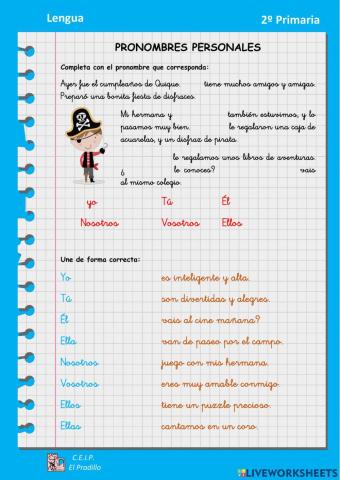 Lengua 2º Primaria
PRONOMBRES PERSONALES
Completa con el pronombre que corresponda:
Ayer fue el cumpleaños de Quique. tiene muchos amigos y amigas.
Preparó una bonita fiesta de disfraces.
Mi hermana y también estuvimos, y lo
pasamos muy bien. le regalaron una caja de
acuarelas, y un disfraz de pirata.
le regalamos unos libros de aventuras.
¿ le conoces? vais
al mismo colegio.
yo Tú Él
Nosotros Vosotros Ellos
Une de forma correcta:
Yo es inteligente y alta.
Tú son divertidas y alegres.
Él vais al cine mañana?
Ella van de paseo por el campo.
Nosotros juego con mis hermana.
Vosotros eres muy amable conmigo.
Ellos tiene un puzzle precioso.
Ellas cantamos en un coro.
C.E.I.P.
El Pradillo
LIVEWORKSHEETS